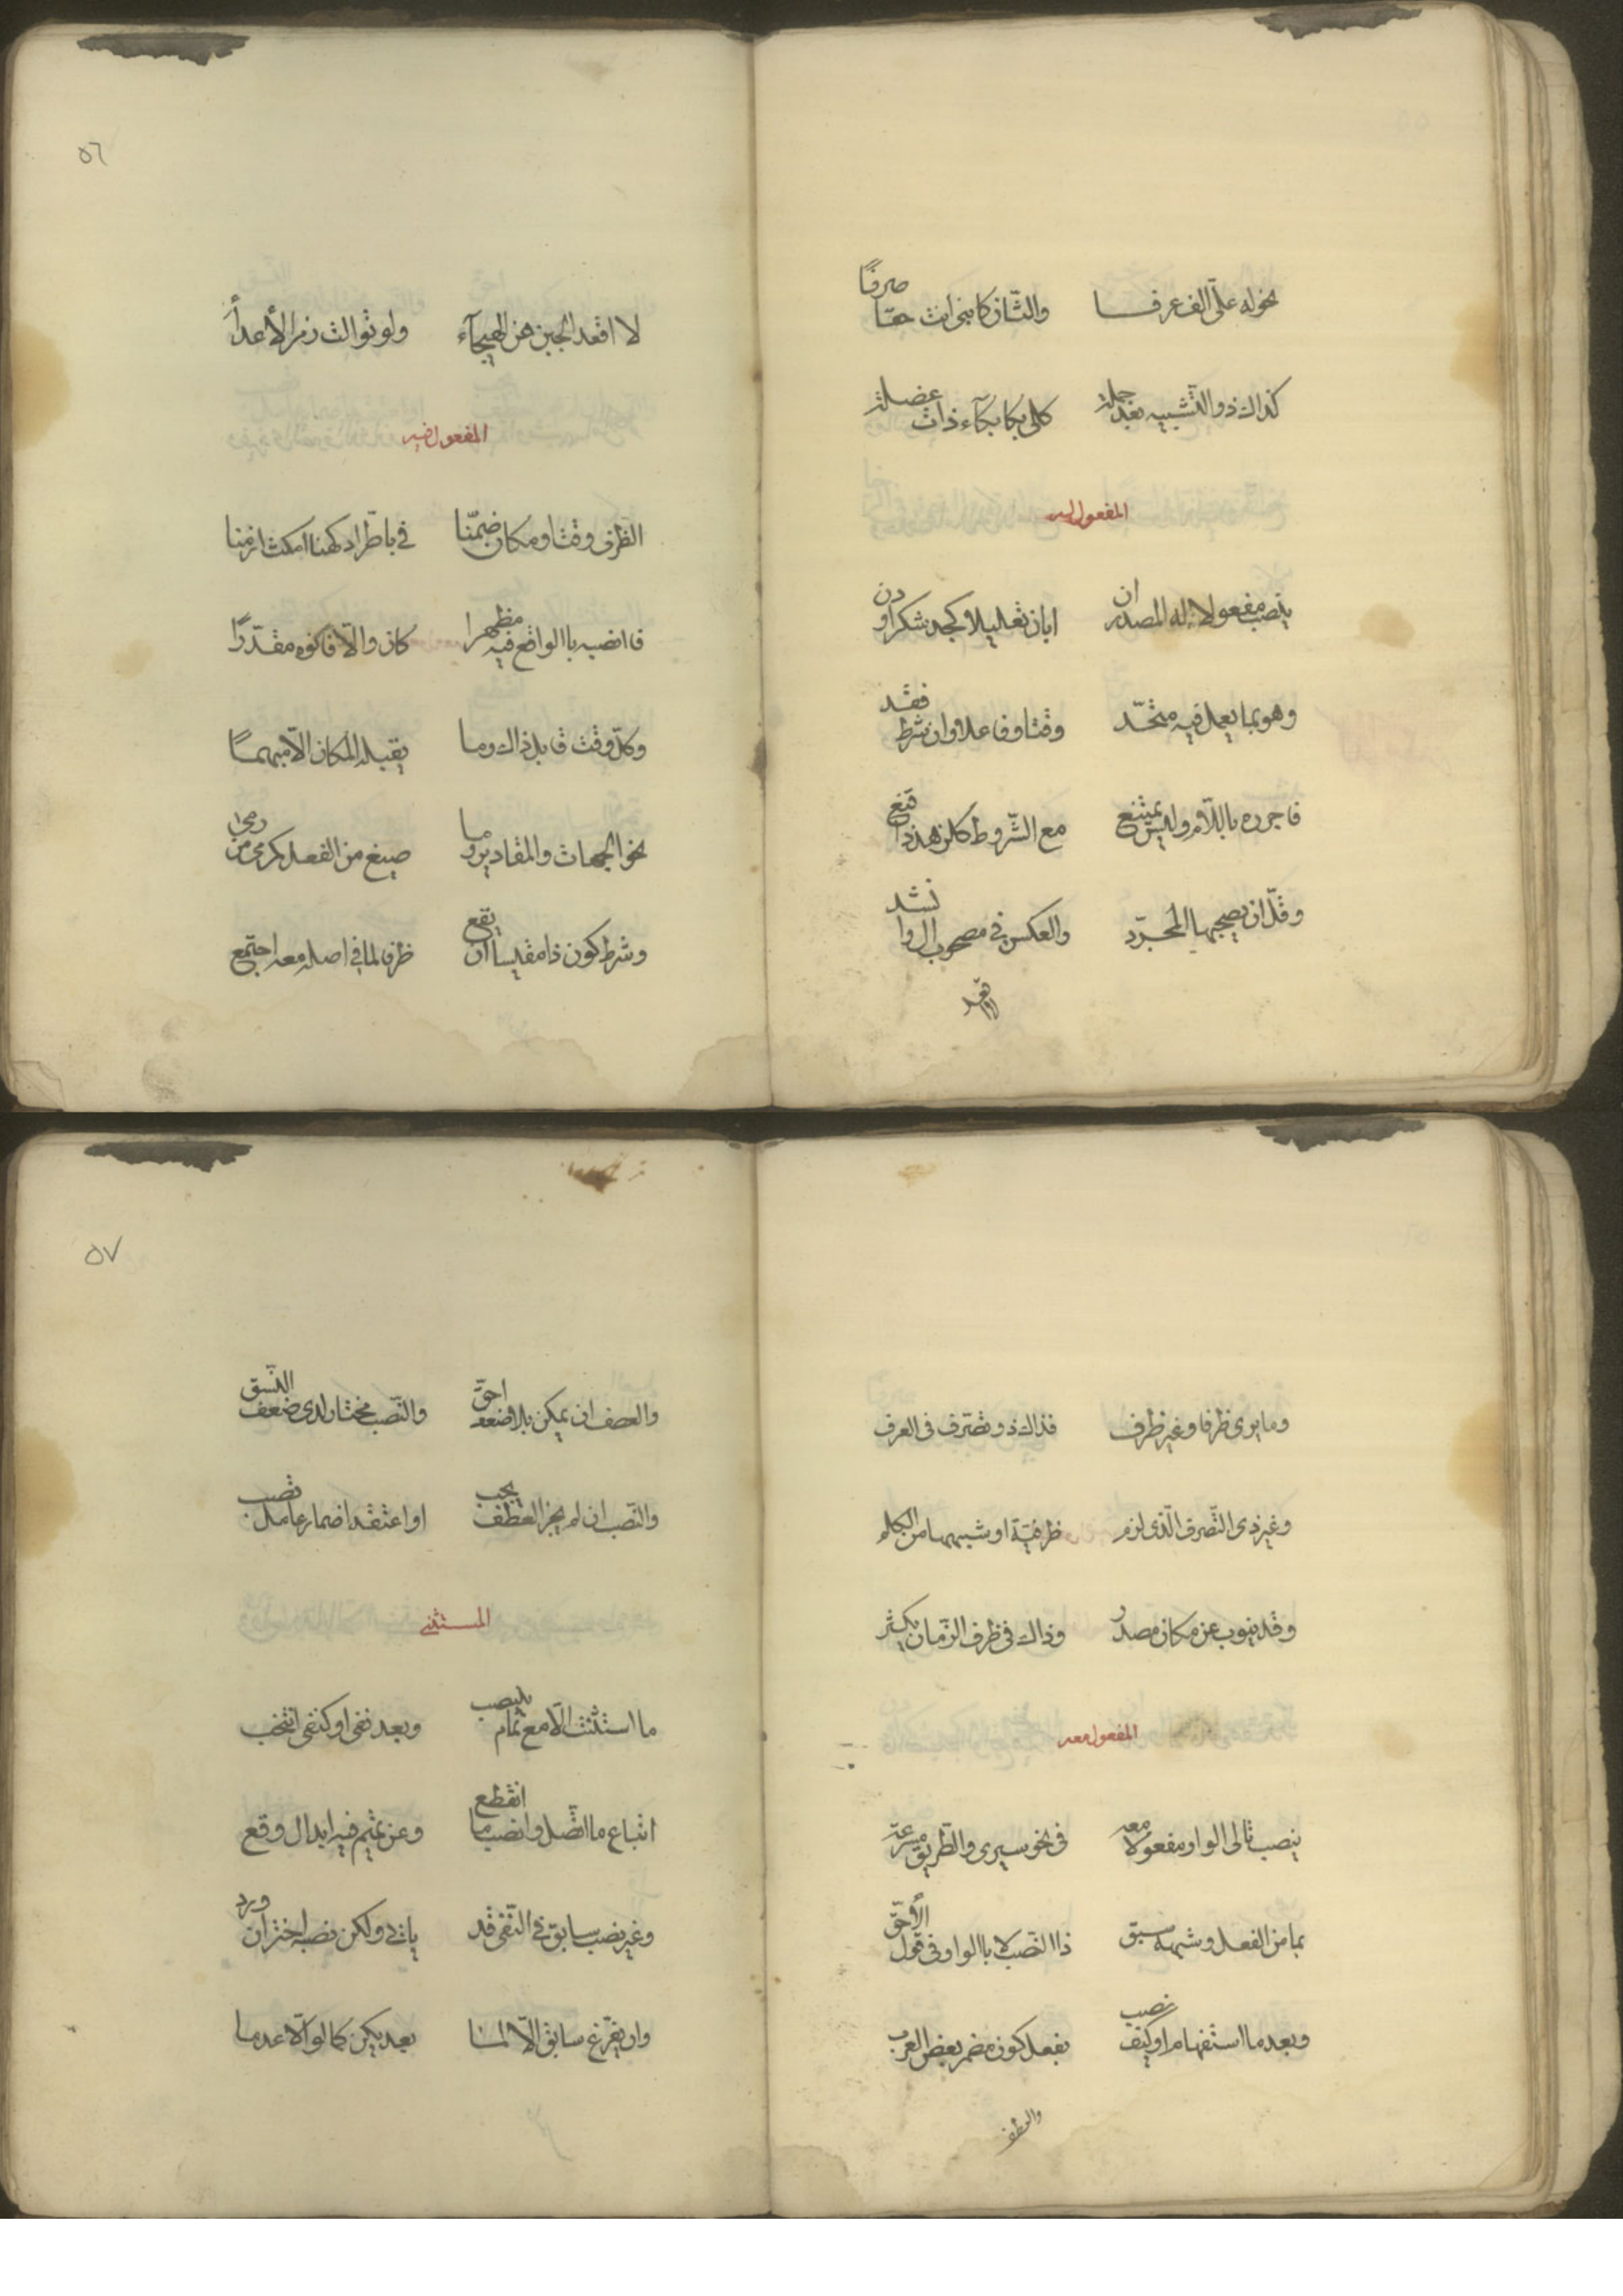 نحو له علىّ الف عرفا والثّان كابنى انت حقّا صرفًا
كذاك ذو التّشبيه بعد جملة كلى بكا بكآء ذات عضلة
المفعول له
ينصب مفعولا له المصدر ان ابان تعليلا كجد شكرا ودن
وهو بما يعمل فيه متّحد وقتا وفاعلا وان شرط فقد
فاجرره باللّام وليس يمتنع مع الشّروط كلزهد ذا قنع
وقلّ ان يصحبها المجرّد والعكس فى مصحوب ال وانشد
لا اقعد
٥٦
لا اقعد الجبن عن الهيجآء ولو توالت زمر الأعدأ
المفعول فيه
الظرف وقتا ومكان ضمّنا فى باطّراد كهنا امكث ازمنا
فاانصبه باالواقع فيه مظهرا كان والّا فاكوه مقدّرًا
وكلّ وقت قابل ذاك وما يقبله المكان الّا مبهمًا
نحو الجهات والمقادير وما صيغ من الفعل كرمى من رمى
وشرط كون ذا مقيسا ان يقع ظرف لما فى اصله معه اجتمع
وما يرى ظرفا وغير ظرف فذاك ذو تصّرف فى العرف
وغير ذى التّصرف الّذى لزم ظرفيّة او شبهها من الكلم
وقد ينوب عن مكان مصدر وذاك فى ظرف الزّمان يكثر
المفعول معه
ينصب تالى الواو مفعولا معه فى نحو سيرى والطّريق مسرعة
بما من الفعل وشبهه سبق ذا النّصب لا باالواو فى قول الأحقّ
وبعد ما استفهام او كيف نصب بفعل كون مضمر بعض العرب
والعطف
٥٧
والعطف ان يمكن بلا ضعف احقّ والنّصب مختار لدى ضعف النّسق
والنّصب ان لم يجز العطف يجب او اعتقد اضمار عامل تصب
المستثنى
ما استثنت الّا مع تمام ينتصب وبعد نفى او كنفى انتخب
اتباع ما اتّصل وانصب ما انقطع وعن تميم فيه ابدال وقع
وغير نصب سابق فى النّفى قد ياتى ولكن نصبه اختر ان ورد
وان يفرّغ سابق الّا لما بعد يكن كما لو الّا عدما